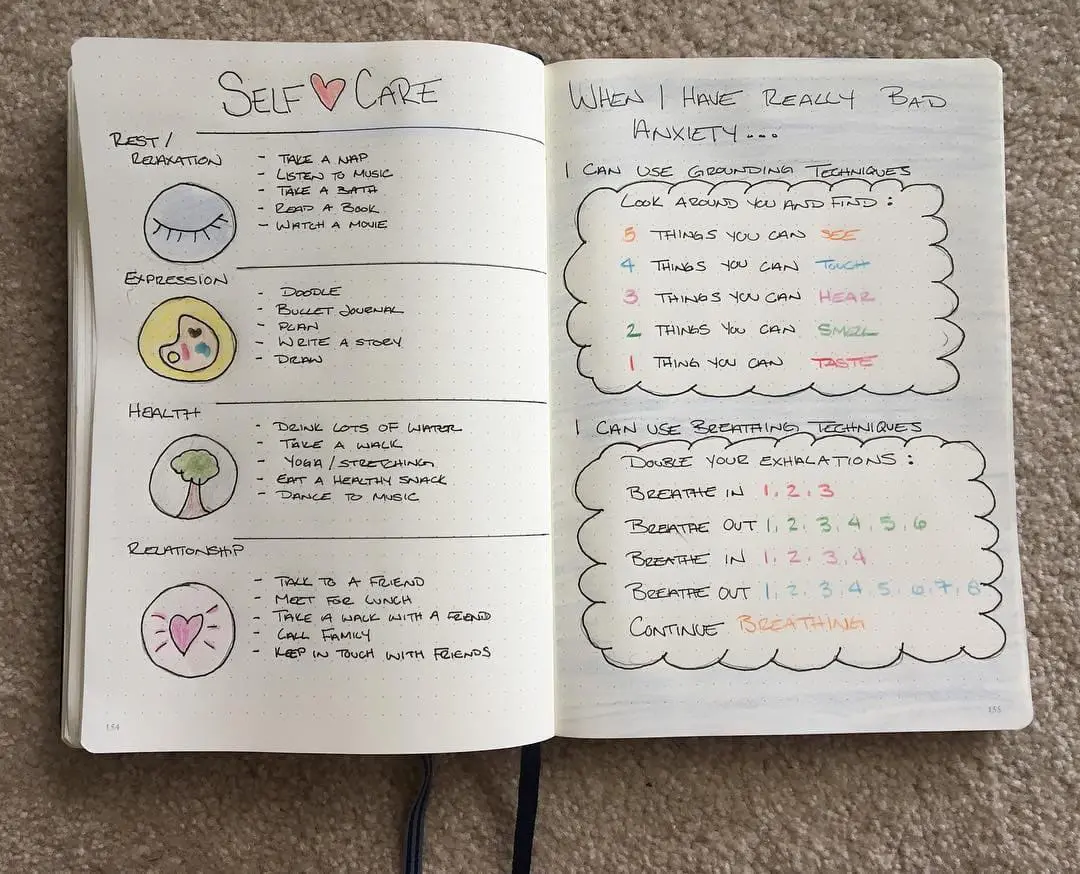 SELF CARE
REST/
RELAXATION
- TAKE A NAP
- LISTEN TO MUSIC
- TAKE A BATH
- READ A BOOK
- WATCH A MOVIE
EXPRESSION
- DOODLE
- BULLET JOURNAL
- PLAN
- WRITE A STORY
- DRAW
HEALTH
- DRINK LOTS OF WATER
- TAKE A WALK
- YOGA / STRETCHING
- EAT A HEALTHY SNACK
- DANCE TO MUSIC
RELATIONSHIP
- TALK TO A FRIEND
- MEET FOR LUNCH
- TAKE A WALK WITH A FRIEND
- CALL FAMILY
- KEEP IN TOUCH WITH FRIENDS
154
WHEN I HAVE REALLY BAD
ANXIETY...
I CAN USE GROUNDING TECHNIQUES
LOOK AROUND YOU AND FIND:
5 THINGS YOU CAN SEE
4 THINGS YOU CAN TOUCH
3 THINGS YOU CAN HEAR
2 THINGS YOU CAN SMELL
1 THING YOU CAN TASTE
I CAN USE BREATHING TECHNIQUES
DOUBLE YOUR EXHALATIONS:
BREATHE IN 1, 2, 3
BREATHE OUT 1, 2, 3, 4, 5, 6
BREATHE IN 1, 2, 3, 4
BREATHE OUT 1, 2, 3, 4, 5, 6, 7, 8
CONTINUE BREATHING
155